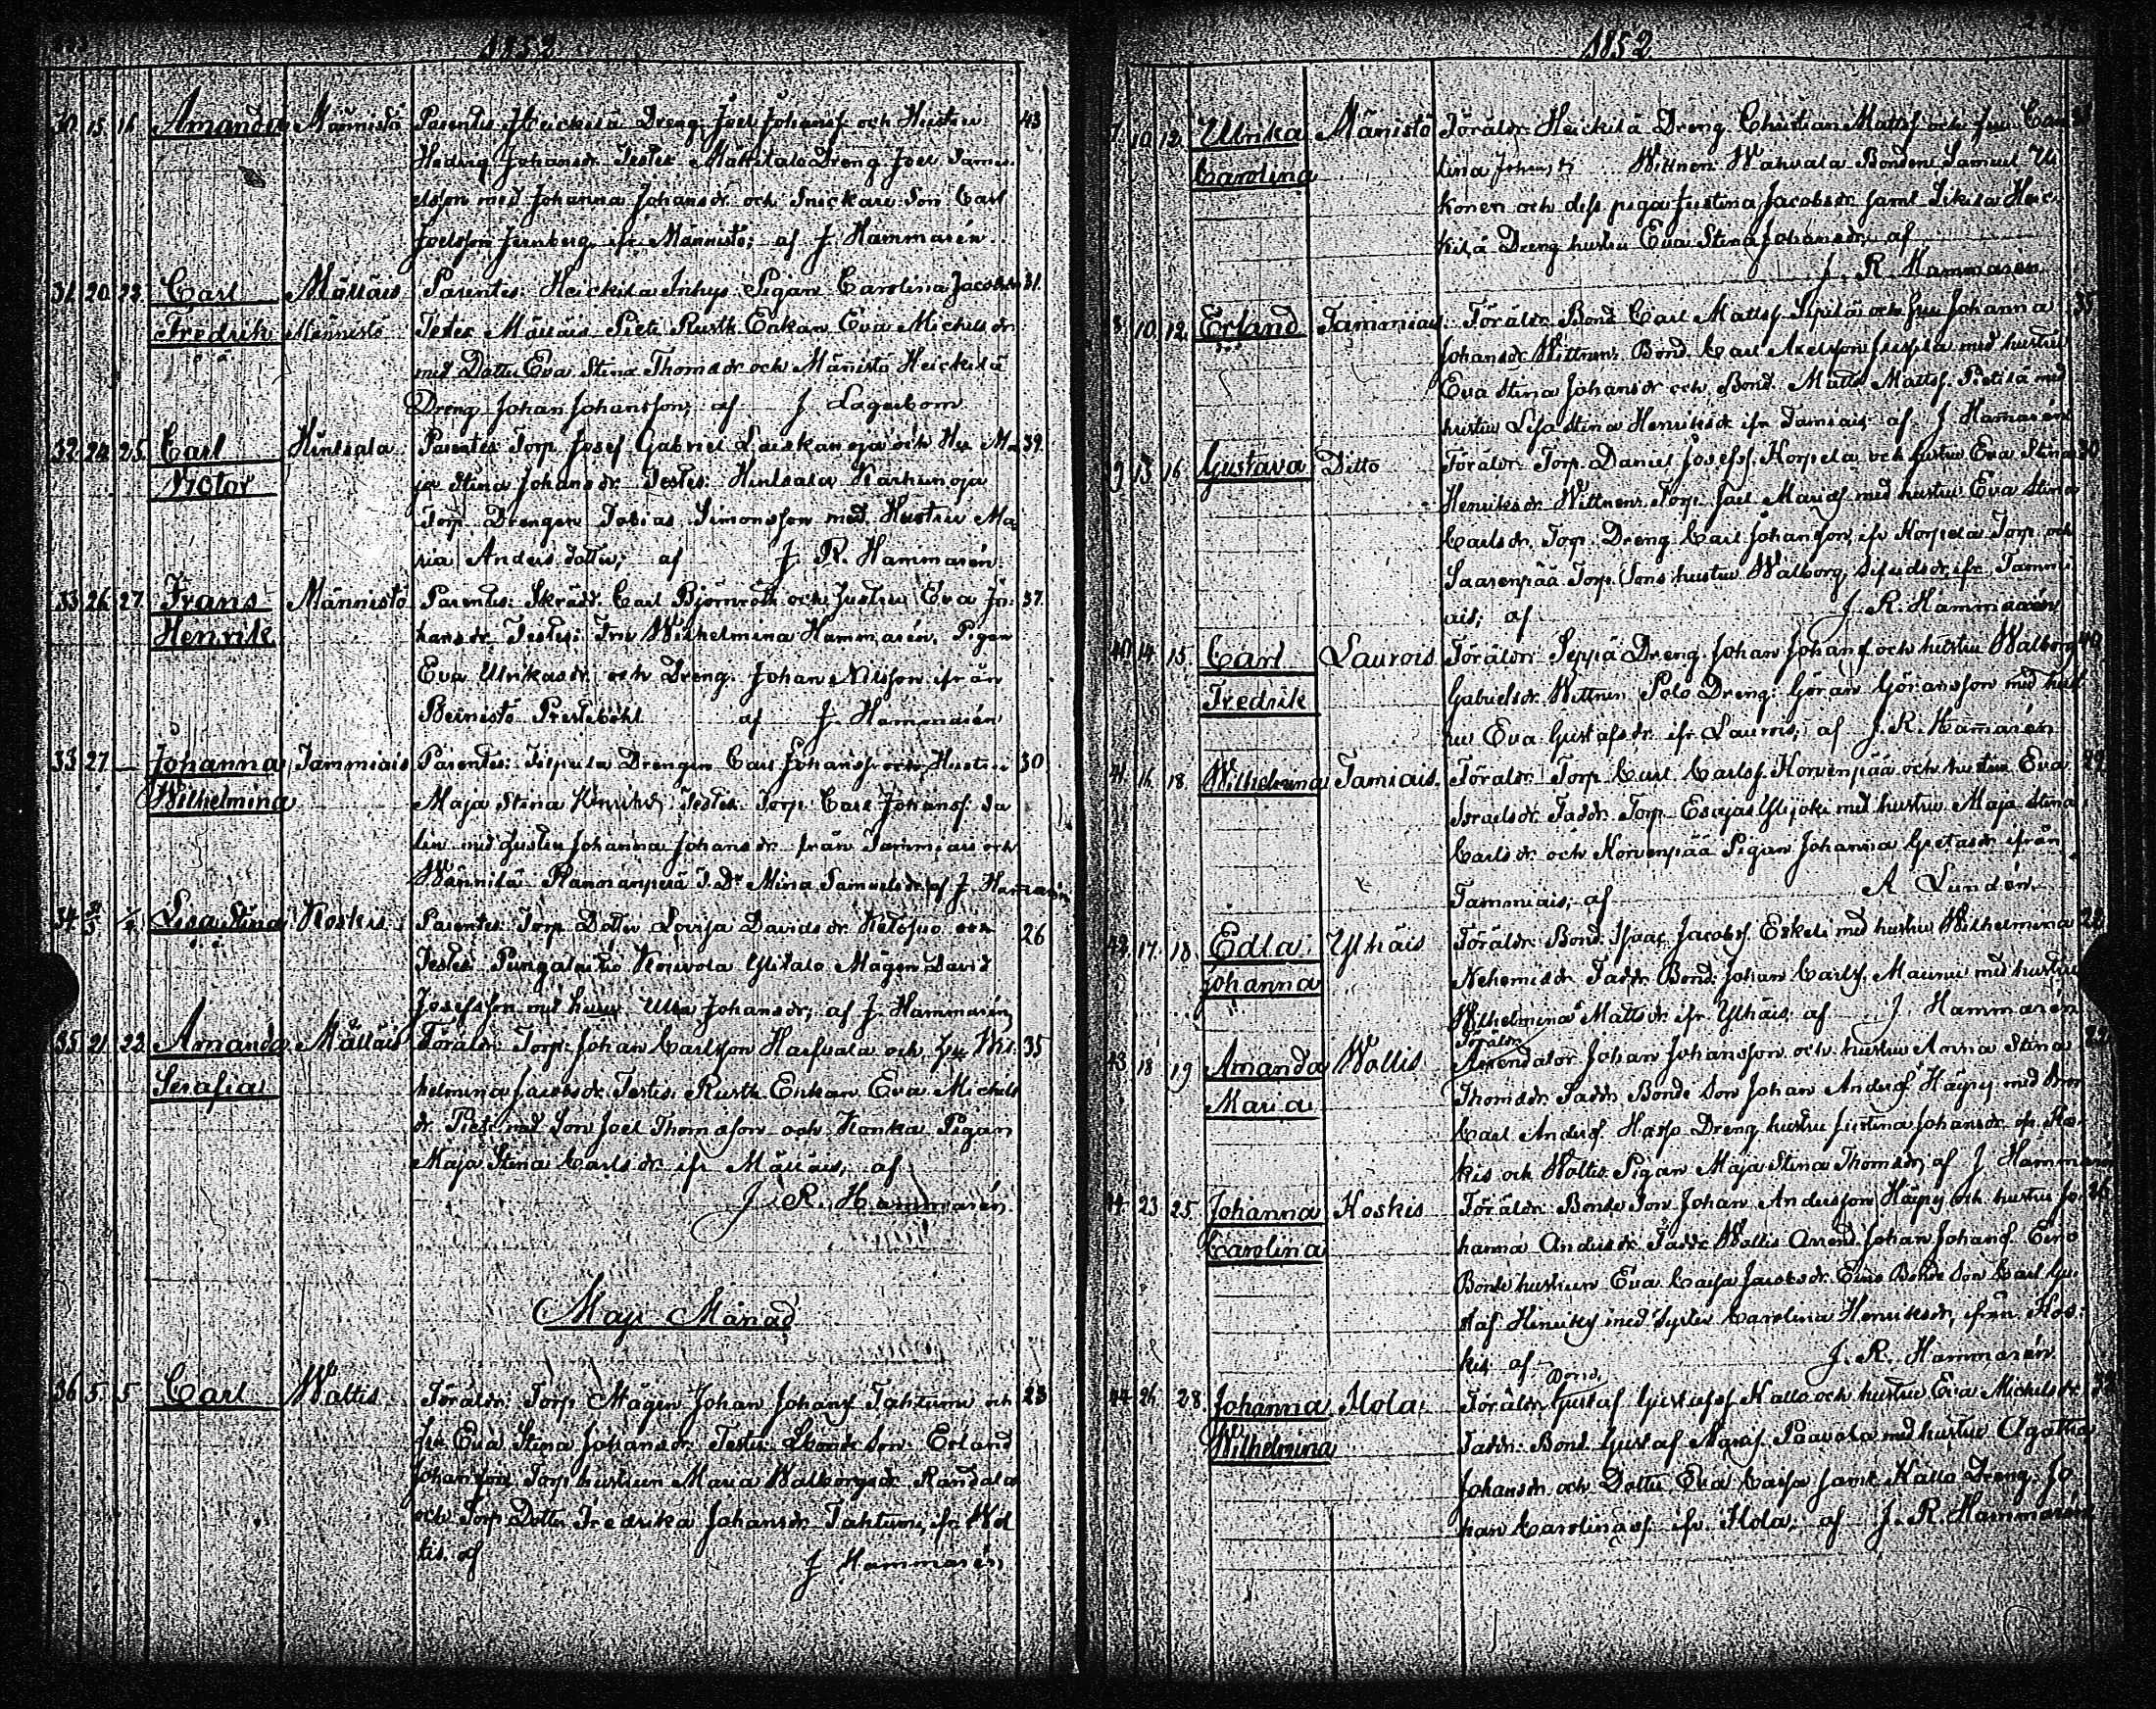 1852
30. 15. 16. Amanda Männistö Parentes Heickilä Dreng Joel Johansf och Hustru 43
Hedvig Johansdr Testes Mattitalo Dreng Joel Samu-
elsson med Johanna Johansdr och Snickare Son Carl
Joelsson Jernberg ifr Männistö; af J Hammarén.
31. 20. 22. Carl Mällais Parentes: Heickila Inhys Pigan Carolina Jacobsdr 31.
Fredrik Männistö Testes Mällais Pieti Rustk. Enkan Eva Michelsdr
med Dotter Eva Stina Thomsdr och Männistö Heickilä
Dreng Johan Johansson; af J Lagerbom
32. 24. 25. Carl Hintsala Parentes Torp. Josef Gabriel och Hu Ma 39.
Victor ja Stina Johansdr Testes: Hintsala Karhunoja
Torp Drengen Tobias Simonsson med Hustru Ma
ria Andersdotter; af J. R. Hammarén.
33. 26. 27. Frans Männistö Parentes: Skrädd. Carl Björnroth och Hustru Eva Jo- 37.
Henrik hansdr Testes: Fru Wilhelmina Hammarén, Pigan
Eva Ulrikasdr och Dreng Johan Nilsson ifrån
Prestebohl af J. Hammarén
33 27 — Johanna Tammiais Parentes: Drengen Carl Johansf och Hustru 30.
Wilhelmina Maja Stina Testes Torp Carl Johansf Sa
lin med hustru Johanna Johansdr från Tammiais och
Mina Samuelsdr af J. Hammarén
34. Lisa Stina Koskis Parentes Torp Dotter Lovisa Davidsdr Ketojuo 26
Testes Pungalaitio Koivola Mågen David
Josefsson med hustru Ulla Johansdr; af J. Hammarén
35. 21. 22. Amanda Mällais Föräldr: Torp: Johan Carlsson och Hu Wil- 35
Serafia helmina Jacobsdr Testes Rustk Enkan Eva Michels
dr Pieti med Son Joel Thomasson och Konka Pigan
Maja Stina Carlsdr ifr Mällais; af
J. R. Hammarén.
Maji Månad
36 5. 5. Carl Waltis Föräldr: Torp Mågen Johan Johansf Tahturi och 23
Hu Eva Stina Johansdr Testes: Son Erland
Johansson Torp hustrun Maria Walborgsdr Randala
och Torp Dotter Fredrika Johansdr Tahturi, ifr Wal
tis. af J Hammarén
1852
7. 10 12. Ulrika Mänistö Föräldr Heickilä Dreng Christian Mattsf och Hu Caro
Carolina lina Johansdr Wittnen Wahvala Bonden Samuel U
konen och dess piga Justina Jacobsdr samt Heic-
kilä Dreng hustru Eva Stina Johansdr; af
J. R. Hammarén
8. 10. 12. Erland Tammiais Föräldr Bond Carl Mattsf Sipilä och Hu Johanna 35
Johansdr Wittnen: Bond. Carl Axelsson med hustru
Eva Stina Johansdr och Bond. Matts Mattsf. Pietilä med
hustru Lisa Stina Henriksdr ifr Tamiais af J Hamarén
9 13. 16. Gustava Ditto Föräldr: Torp. Daniel Josefsf. Korpela och hustru Eva Stina 30
Henriksdr Wittnen: Torp. Joel med hustru Eva Stina
Carlsdr, Torp. Dreng Carl Johansson, ifr Korpela Torp och
Saarenpää Torp. Sons hustru Walborg ifr Tammi
ais; af J. R. Hammarén
40. 14. 15. Carl Laurois Föräldr: Seppä Dreng Johan Johansf och hustru Walborg 40.
Fredrik Gabrielsdr Wittnen Polo Dreng: Göran Göransson med hust
ru Eva Gustafsdr ifr Laurois; af J. R. Hamarén
41. 16. 18. Wilhelmina Tamiais. Föräldr: Torp. Carl Carlsf Korvenpää och hustru Eva 29
Israelsdr Faddr. Torp Esajas Ylijoki med hustru Maja Stina
Carlsdr och Korvenpää Pigan Johanna Gretasdr ifrån
Tammiais; af A Lundén
42. 17. 18. Edla Ylhäis Föräldr: Bond. Isaac Jacobsf Eskeli med hustru Wilhelmina 28
Johanna Nehemisdr Faddr Bond: Johan Carlsf. Maunu med hustru
Wilhelmina Mattsdr ifr Ylhäis; af J Hammarén
43. 18 19 Amanda Waltis Föräldr Arrendator Johan Johansson och hustru Lovisa Stina 22
Maria Thomsdr Faddr, Bonde Son Johan Andersf. Häyry med bror
Carl Andersf. Dreng hustru Justina Johansdr ifr Kos-
kis och Waltis Pigan Maja Stina Thomsdr, af J Hammarén
44. 23. 25. Johanna Koskis Föräldr: Bonde Son Johan Andersson Häyry och hustru Jo- 26
Carolina hanna Andersdr. Faddr Waltis Arrend. Johan Johansf. Eino
Bonde hustrun Eva Caisa Jacobsdr. Eino Bonde Son Carl Gu-
staf med Syster Carolina Henriksdr, ifrån Kos-
kis af J. R. Hammarén
44. 26. 28. Johanna Ilola Föräldr: Bond. Gustaf Gustafsf Kallo och hustru Eva Michelsdr 32
Wilhelmina Faddr: Bond Gustaf Paavola med hustru Agatha
Johansdr och Dotter Eva Caisa samt Kallo Dreng Jo
han Carolinasf. ifr. Ilola; af J. R. Hammarén